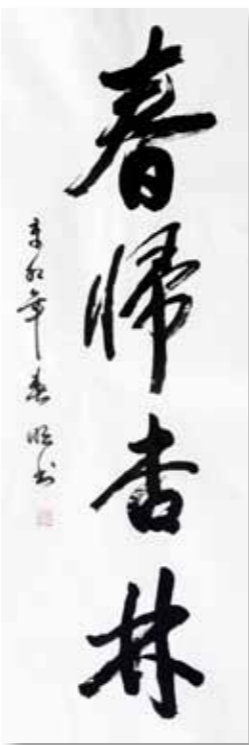 春帰杏林
辛卯年春书